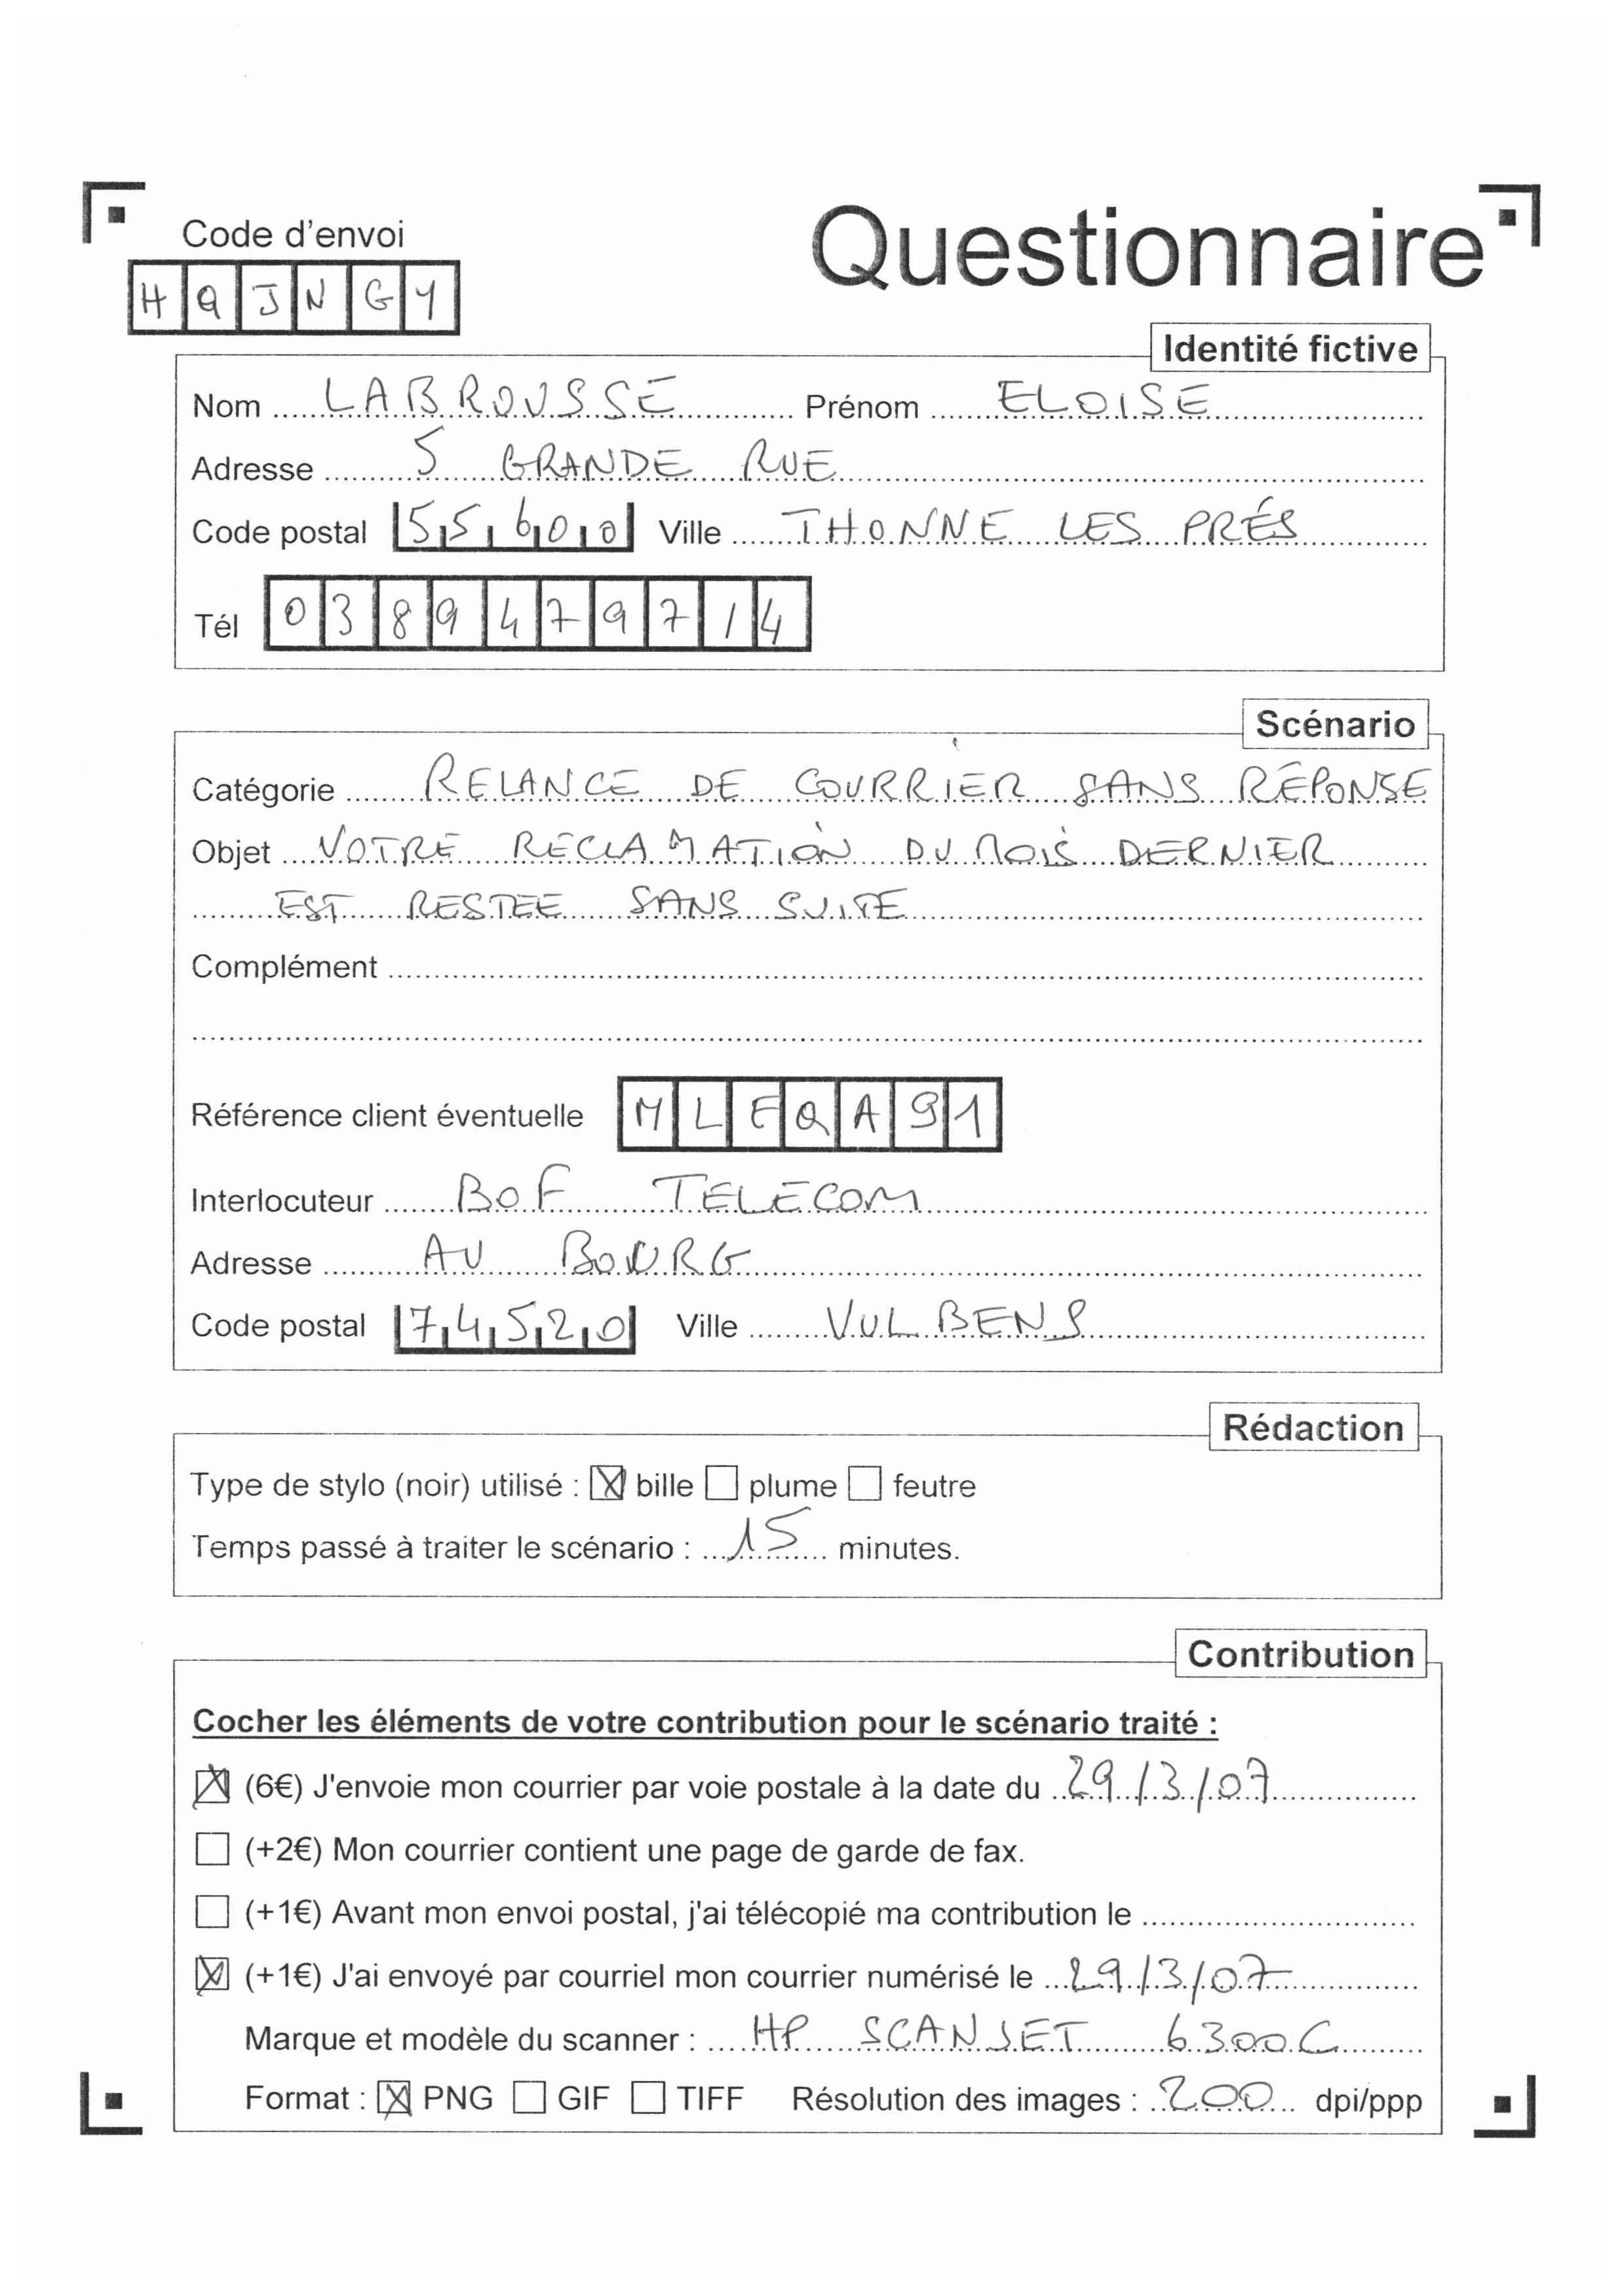 Questionnaire
Code d'envoi
HQJNGY
Identité fictive
Nom LABROUSSE Prénom ELOISE
Adresse 5 GRANDE RUE
Code postal 55600 Ville THONNE LES PRÉS
Tél 0389479714
Scénario
Catégorie RELANCE DE COURRIER SANS RÉPONSE
Objet VOTRE RECLAMATION DU MOIS DERNIER
EST RESTEE SANS SUITE
Complément
Référence client éventuelle MLEQA91
Interlocuteur BOF TELECOM
Adresse AU BOURG
Code postal 74520 Ville VULBENS
Rédaction
Type de stylo (noir) utilisé : ☒ bille ☐ plume ☐ feutre
Temps passé à traiter le scénario : 15 minutes.
Contribution
Cocher les éléments de votre contribution pour le scénario traité :
☒ (6€) J'envoie mon courrier par voie postale à la date du 29/3/07
☐ (+2€) Mon courrier contient une page de garde de fax.
☐ (+1€) Avant mon envoi postal, j'ai télécopié ma contribution le
☒ (+1€) J'ai envoyé par courriel mon courrier numérisé le 29/3/07
Marque et modèle du scanner : HP SCANJET 6300C
Format : ☒ PNG ☐ GIF ☐ TIFF Résolution des images : 200 dpi/ppp